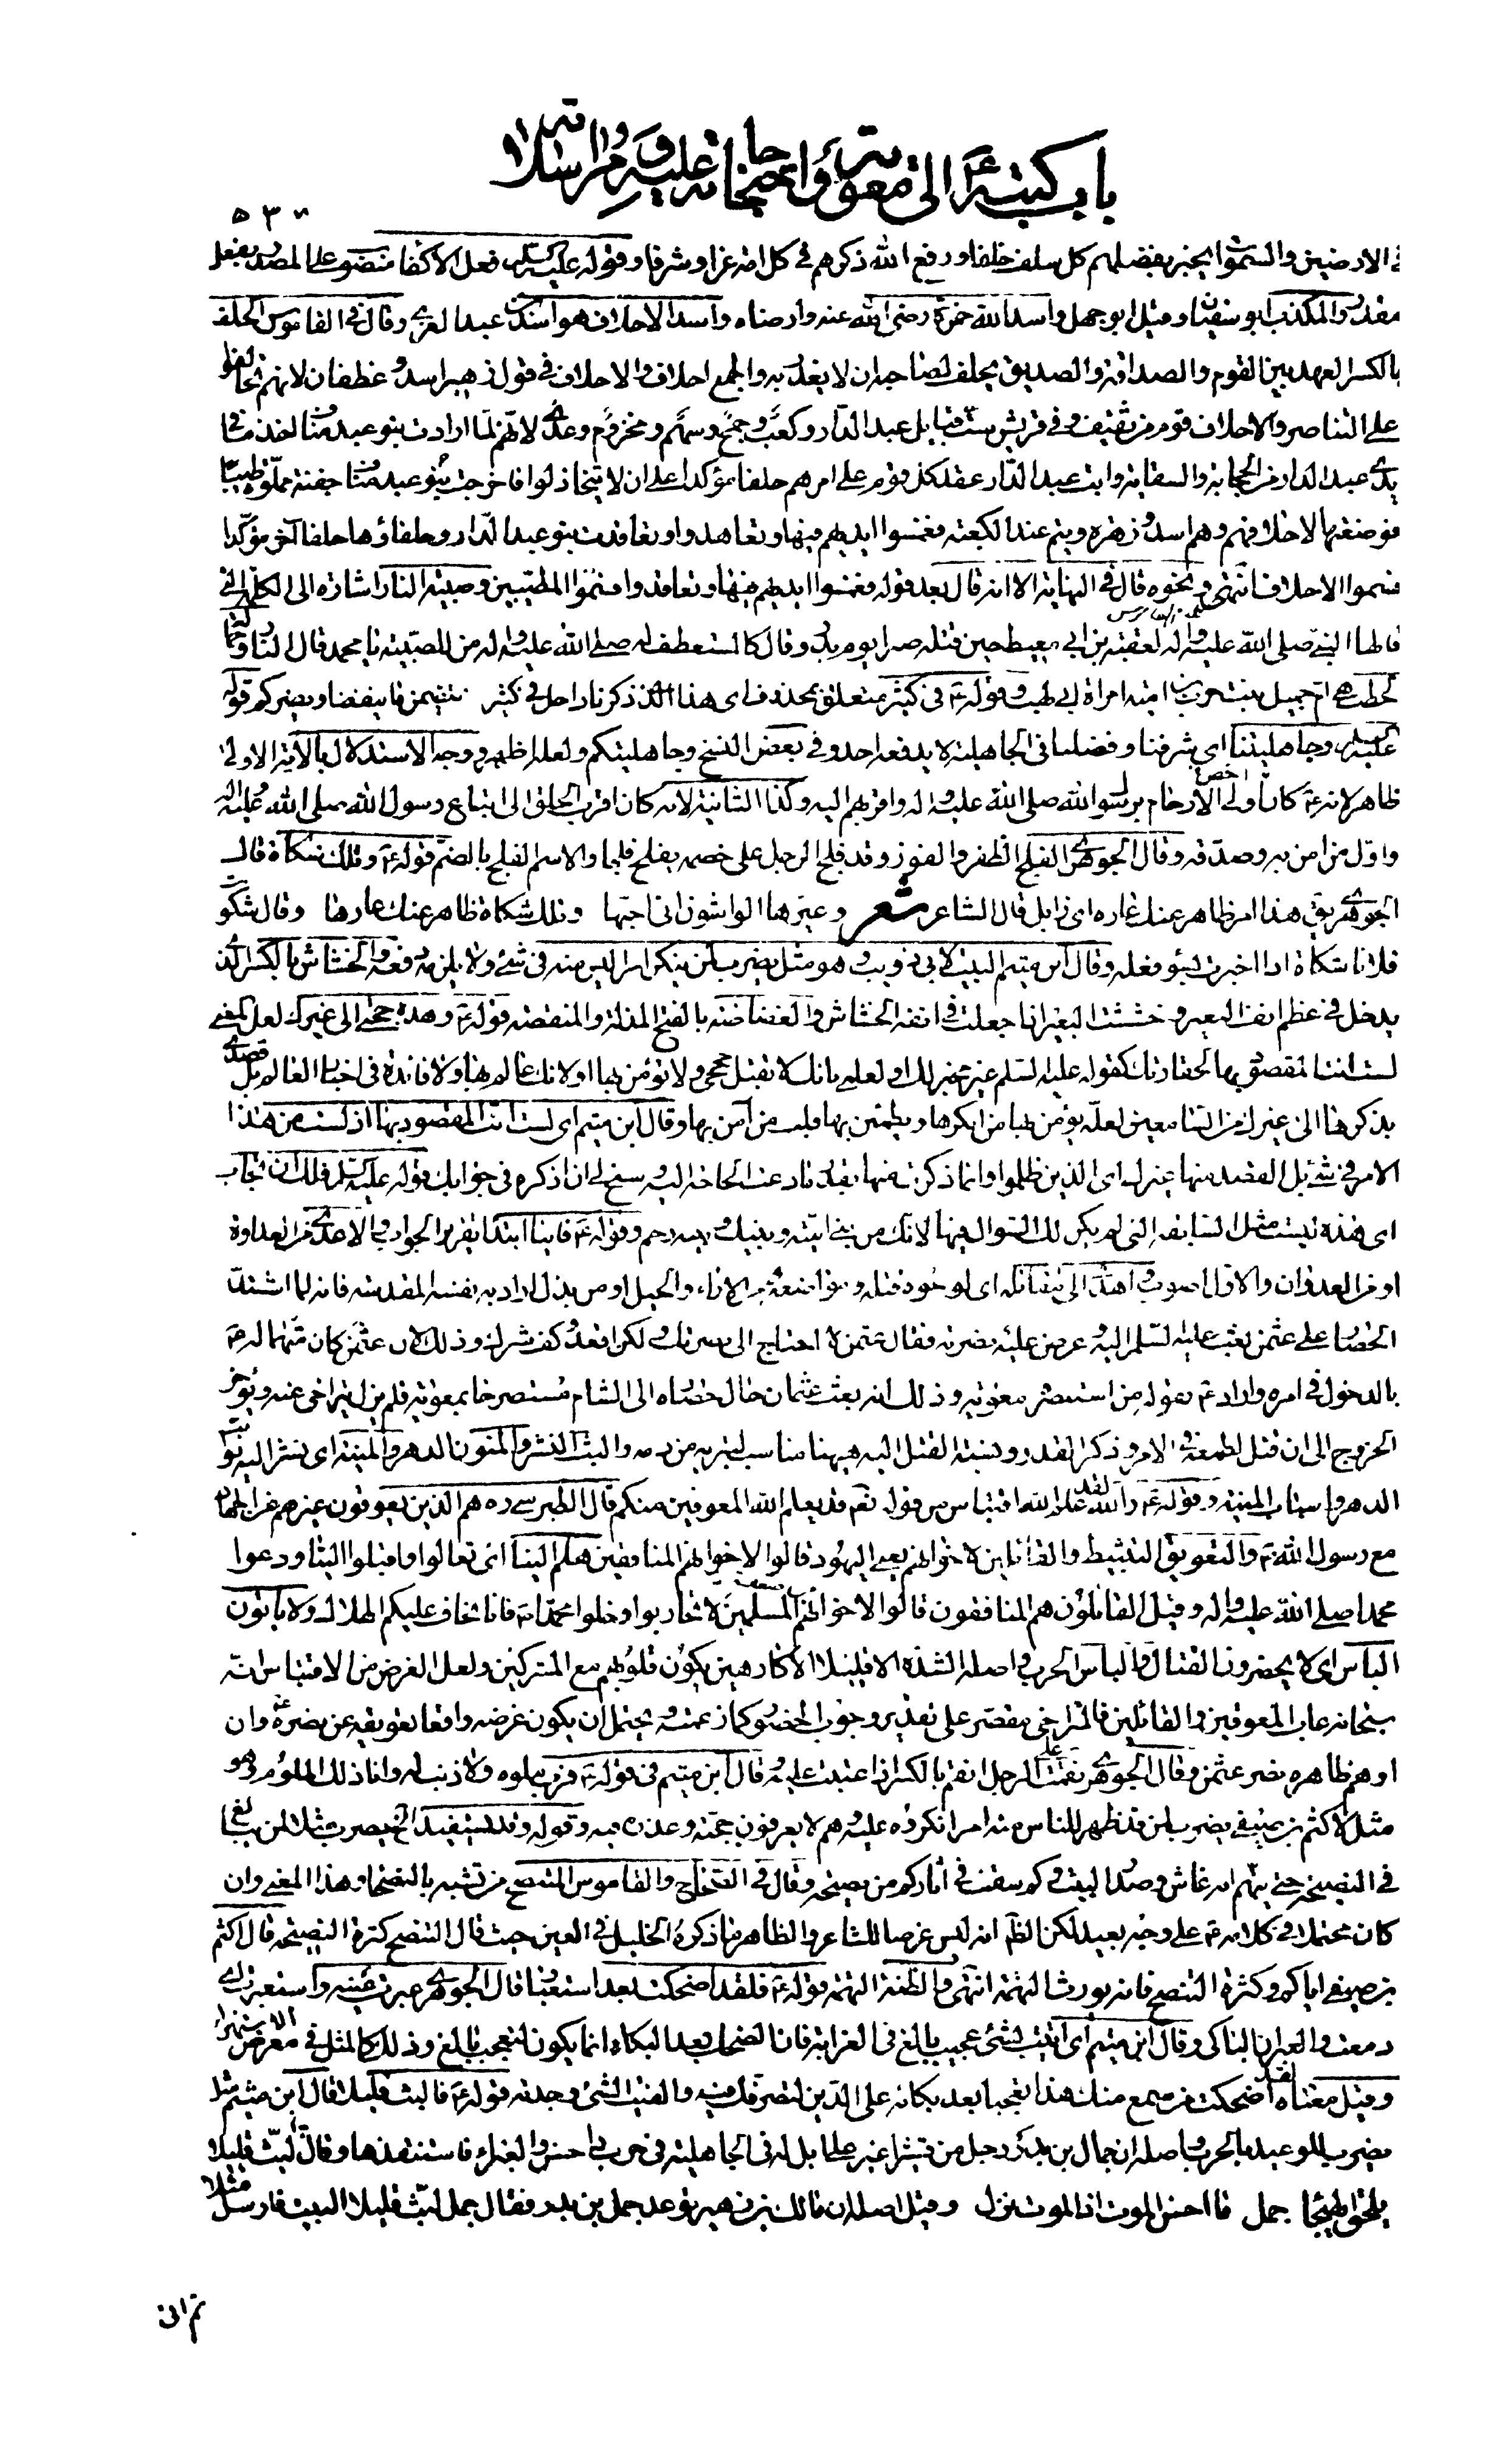 باب كتبه ع الى معوية واحتجاجاته عليه ومراسلاته
٥٣٧
في الارضين والسموات الخبر بفضلهم كل سلف خلفا ورفع الله ذكرهم في كل امة عزا وشرفا وقوله عليه السلم فعل الاكفاء منصوب على المصدر بفعل
مقدر والمكذب ابو سفيان وقيل ابو جهل واسد الله حمزة رضي الله عنه وارضاه واسد الاحلاف هو اسد بن عبد العزى وقال في القاموس الحلف
بالكسر العهد بين القوم والصداقة والصديق يحلف لصاحبه ان لا يغدر به والجمع احلاف والاحلاف في قول زهير اسد وغطفان لانهم تحالفوا
على التناصر والاحلاف قوم من ثقيف وفي قريش ست قبايل عبد الدار وكعب وجمح وسهم ومخزوم وعدي لانهم لما ارادت بنو عبد مناف اخذ ما في
يدي عبد الدار من الحجابة والسقاية وابت عبد الدار عقد كل قوم على امرهم حلفا مؤكدا على ان لا يتخاذلوا فاخرجت بنو عبد مناف جفنة مملوة طيبا
فوضعتها لاحلافهم وهم اسد وزهرة وتيم عند الكعبة فغمسوا ايديهم فيها وتعاهدوا وتعاقدت بنو عبد الدار وحلفاؤها حلفا آخر مؤكدا
فسموا الاحلاف انتهى ونحوه قال في النهاية الا انه قال بعد قوله فغمسوا ايديهم فيها وتعاقدوا فسموا المطيبين وصبية النار اشارة الى الكلمة التي
قالها النبي صلى الله عليه واله لعقبة بن ابي معيط حين قتله صبرا يوم بدر وقال كالمستعطف له صلى الله عليه واله من للصبية يا محمد قال النار وحمالة
الحطب هي ام جميل بنت حرب بن امية امراة ابي لهب وقوله ع في كثير متعلق بمحذوف اي هذا الذي ذكرنا داخل في كثير مما يتضمن ما ينفعنا ويضركم قوله
عليه السلم وجاهليتنا اي شرفنا وفضلنا في الجاهلية لا يدفعه احد وفي بعض النسخ وجاهليتكم ولعله اظهر ووجه الاستدلال بالآية الاولى
ظاهر لانه ع كان اخص اولي الارحام برسول الله صلى الله عليه واله واقربهم اليه وكذا الثانية لانه كان اقرب الخلق الى اتباع رسول الله صلى الله عليه واله
واول من امن به وصدقه وقال الجوهري الفلج الظفر والفوز وقد فلج الرجل على خصمه يفلج فلجا والاسم الفلج بالضم قوله ع وتلك شكاة قال
الجوهري يقال هذا امر ظاهر عنك عاره اي زايل قال الشاعر شعر وعيرها الواشون اني احبها وتلك شكاة ظاهر عنك عارها وقال شكوت
فلانا شكاة اذا اخبرت بسوء فعله وقال ابن ميثم البيت لابي ذويب وهو مثل يضرب لمن ينكر امرا ليس منه في شئ ولا يلزمه دفعه والخشاش بالكسر الذي
يدخل في عظم انف البعير وخششت البعير اذا جعلت في انفه الخشاش والغضاضة بالفتح المذلة والمنقصة قوله ع وهذه حجتي الى غيرك لعل المعنى
لست انت المقصود بها لحقارتك كقوله عليه السلم غير مخبر لك او لعلمي بانك لا تقبل حججي ولا تؤمن بها او لانك عالم بها ولا فائدة في اخبار العالم بل قصدي
بذكرها الى غيرك من السامعين لعله يؤمن بها من انكرها ويطمئن بها قلب من آمن بها وقال ابن ميثم اي لست انت المقصود بها اذ لست من هذا
الامر في شئ بل القصد منها غيرك اي الذين ظلموا وانما ذكرت منها بقدر ما دعت الحاجة اليه وسنح لي ان اذكره في جوابك قوله عليه السلم فلك ان تجاب
اي هذه ليست مثل السابقة التي لم يكن لك السوال فيها لانك من بني امية وبينك وبينه رحم وقوله ع فاينا ابتداء تقرير الجواب والاعدى من العداوة
او من العدوان والاول اصوب واهدى الى مقاتله اي لوجوه قتله ومواضعه من الاراء والحيل او من بذل اراد به نفسه المقدسة فانه لما اشتد
الحصار على عثمن بعث عليه السلم اليه وعرض عليه نصرته فقال عثمن لا احتاج الى نصرتك ولكن اقعد وكف شرك وذلك لان عثمن كان متهما له ع
بالدخول في امره واراد ع بقوله من استنصره معوية وذلك انه بعث عثمان حال حصاره الى الشام مستصرخا بمعوية فلم يزل يتراخى عنه ويؤخر
الخروج الى ان قتل لطمعه في الامر وذكر القدر ونسبة القتل اليه ههنا مناسب لتبريه من دمه والبث النشر والمنون الدهر والمنية اي نشر اليه نوائب
الدهر واسباب المنية وقوله ع والله لقد علم الله اقتباس من قوله تع قد يعلم الله المعوقين منكم قال الطبرسي ره هم الذين يعوقون غيرهم عن الجهاد
مع رسول الله ص والتعويق التثبيط والقائلين لاخوانهم يعني اليهود قالوا لاخوانهم المنافقين هلم الينا اي تعالوا واقبلوا الينا ودعوا
محمدا صلى الله عليه واله وقيل القائلون هم المنافقون قالوا لاخوانهم المسلمين لا تحاربوا وخلوا محمدا ص فانا نخاف عليكم الهلاك ولا ياتون
الباس اي لا يحضرون القتال والباس الحرب واصله الشدة الا قليلا الا كارهين يكون قلوبهم مع المشركين ولعل الغرض من الاقتباس انه
سبحانه عاب المعوقين والقائلين فالمتراخي مقصر على تقدير وجوب الحضور كما زعمته ويحتمل ان يكون غرضه واقعا تعويقه عن نصره ع وان
اوهم ظاهره نصر عثمن وقال الجوهري نقمت على الرجل انقم بالكسر اذا عتبت عليه قال ابن ميثم في قوله ع فرب ملوم لا ذنب له وانا ذلك الملوم وهو
مثل لاكثم بن صيفي يضرب لمن قد ظهر للناس منه امر انكروه عليه وهم لا يعرفون حجته وعذره فيه وقوله وقد يستفيد الخ يضرب مثلا لمن يبالغ
في النصيحة حتى يتهم انه غاش وصدر البيت وكم سقت في آثاركم من نصيحة وقال في الصحاح والقاموس المتنصح من تشبه بالنصحاء وهذا المعنى وان
كان محتملا في كلامه ع على وجه بعيد لكن الظ انه ليس غرضا للشاعر والظاهر ما ذكره الخليل في العين حيث قال التنصح كثرة النصيحة قال اكثم
بن صيفي اياكم وكثرة التنصح فانه يورث التهمة انتهى والظنة التهمة قوله ع فلقد اضحكت بعد استعبار قال الجوهري عبرت عينه واستعبرت اي
دمعت والعبران الباكي وقال ابن ميثم اي اتيت بشئ عجيب بالغ في الغرابة فان الضحك بعد البكاء انما يكون لتعجب بالغ وذلك كالمثل في معرض الاستهزاء
وقيل معناه لقد اضحكت من سمع منك هذا تعجبا بعد بكائه على الدين لتصرفك فيه والفيت الشئ وجدته قوله ع فالبث قليلا قال ابن ميثم مثل
يضرب للوعيد بالحرب واصله ان حمل بن بدر رجل من قشير اغير على ابل له في الجاهلية في حرب داحس والغبراء فاستنقذها وقال لبث قليلا
يلحق الهيجا حمل ما احسن الموت اذا الموت نزل وقيل اصله ان مالك بن زهير توعد حمل بن بدر فقال حمل لبث قليلا البيت فارسل مثلا
ثم اتى